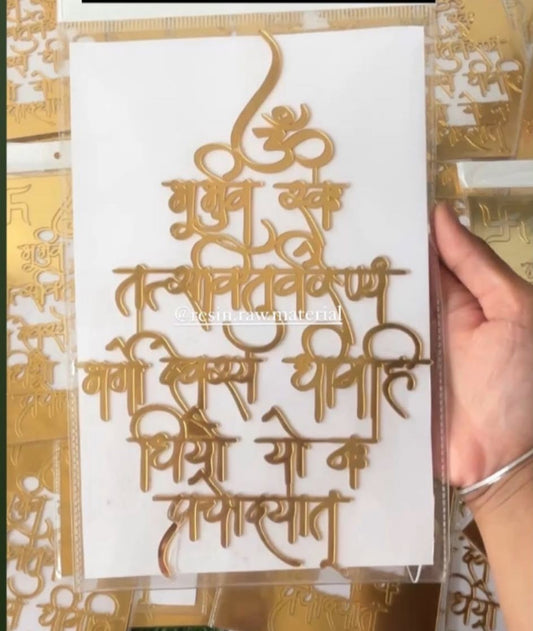 ॐ
भूर्भुव स्वः
तत्सवितुर्वरेण्यं
@resin.raw.material
भर्गो देवस्य धीमहि
धियो यो नः
प्रचोदयात्